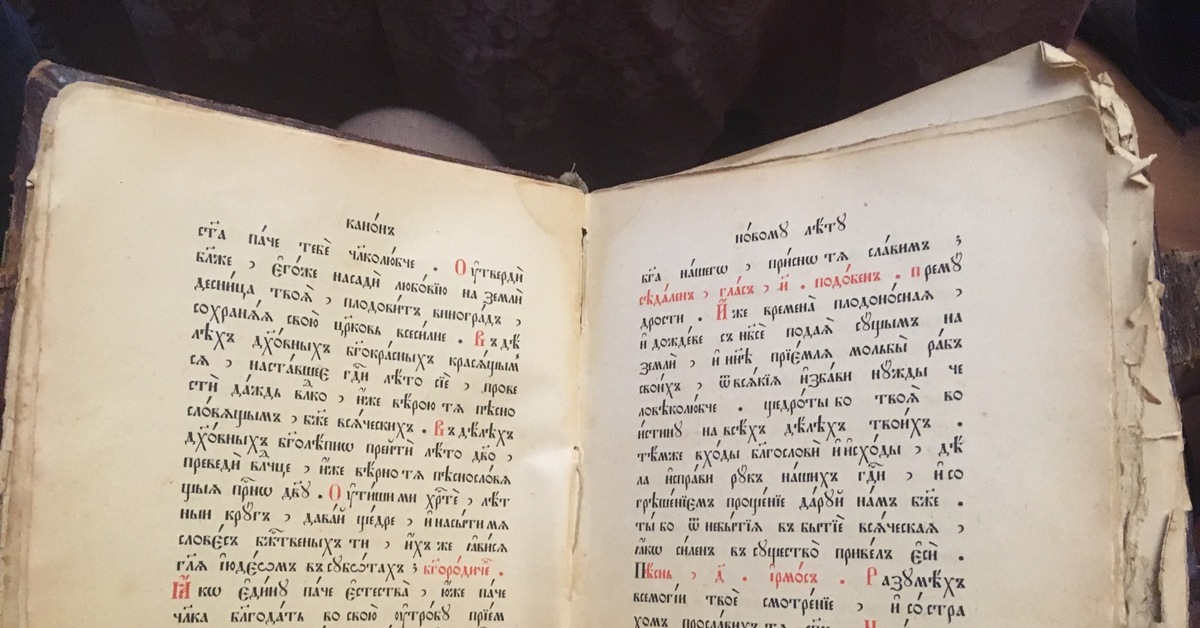 кано́нъ
ст҃а па́че тебѐ чл҃колю́бче . О у҆твердѝ
бл҃же , є҆го́же насадѝ любо́вїю на землѝ
десни́ца твоѧ̀ , плодови́тъ виногра́дъ ,
сохранѧ́ѧ свою̀ цр҃ковь всеси́лне . Въ дѣ́
лѣхъ дх҃о́вныхъ бг҃окра́сныхъ красѧ́щым
сѧ , наста́вшее гдⷭ҇и лѣ́то сїѐ , прове
стѝ да́ждь влⷣко , и҆́же вѣ́рою тѧ пѣсно
сло́вѧщымъ , бж҃е всѧ́ческихъ . Въ дѣ́лѣхъ
дх҃о́вныхъ бг҃олѣ́пнѡ прейтѝ лѣ́то дв҃о ,
преведѝ влⷣчце , и҆́же вѣ́рно тѧ пѣсносло́вѧ
щыѧ при́снѡ дв҃ꙋ . О у҆ти́ши ми хрⷭ҇тѐ , лѣ́т
ныи крꙋ́гъ , дава́й ще́дре , и҆ насы́ти мѧ
слове́съ бжⷭ҇твеныхъ ти , и҆́хъ же ꙗ҆ви́сѧ
гл҃ѧ і҆ꙋде́ѡмъ въ сꙋбѡ́тахъ : бг҃оро́диченъ .
Ꙗ҆́ кѡ є҆ди́нꙋ па́че є҆стества̀ , ю҆́же па́че
чл҃ка блг҃ода́ть во свою̀ ѹ҆тро́бꙋ прїе́м
но́вомꙋ лѣ́тꙋ
бг҃а на́шегѡ , при́снѡ тѧ сла́вимъ :
сѣда́ленъ , гла́съ , и҃ . подо́бенъ . п рему́
дрости . И҆́ же времена̀ плодоно́снаѧ ,
и҆ дожде́ве съ нб҃сѐ подаѧ̀ сꙋ́щымъ на
землѝ , и҆ нн҃ѣ прїе́млѧ мольбы̀ ра́бъ
свои́хъ , ѿ всѧ́кїѧ и҆зба́ви нꙋ́жды че
ловѣколю́бче . щедро́ты бо твоѧ̀ во
и́стинꙋ на всѣ́хъ дѣ́лѣхъ твои́хъ .
тѣ́мже вхо́ды блг҃ословѝ и҆ и҆схо́ды , дѣ́
ла и҆спра́ви рꙋ́къ на́шихъ гдⷭ҇и , и҆ со
грѣше́нїемъ проще́нїе да́рꙋй на́мъ бж҃е .
ты́ бо ѿ небытїѧ̀ въ бытїѐ всѧ́ческаѧ ,
ꙗ҆́кѡ си́ленъ въ сꙋщество̀ приве́лъ є҆сѝ .
Пѣ́снь , д҃ . і҆рмо́съ . Р азꙋмѣ́хъ
всемоги́и твоѐ смотре́нїе , и҆ со́ стра
хомъ просла́вихъ тѧ